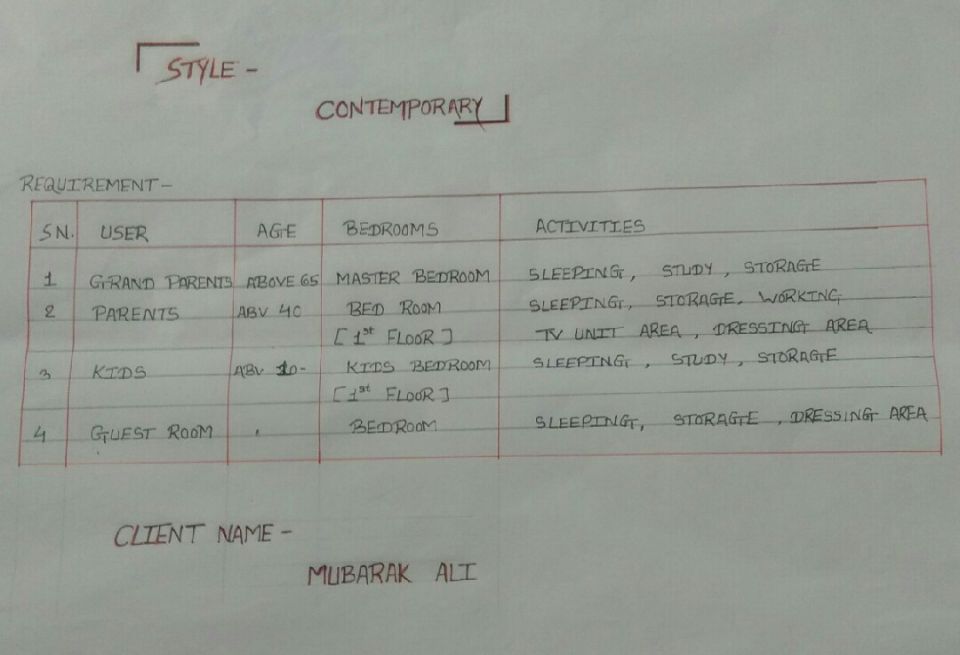 STYLE -
CONTEMPORARY
REQUIREMENT -
SN. USER AGE BEDROOMS ACTIVITIES
1 GRAND PARENTS ABOVE 65 MASTER BEDROOM SLEEPING, STUDY, STORAGE
2 PARENTS ABV 40 BED ROOM SLEEPING, STORAGE, WORKING
[1st FLOOR] TV UNIT AREA, DRESSING AREA
3 KIDS ABV 10- KIDS BEDROOM SLEEPING, STUDY, STORAGE
[1st FLOOR]
4 GUEST ROOM BEDROOM SLEEPING, STORAGE, DRESSING AREA
CLIENT NAME -
MUBARAK ALI